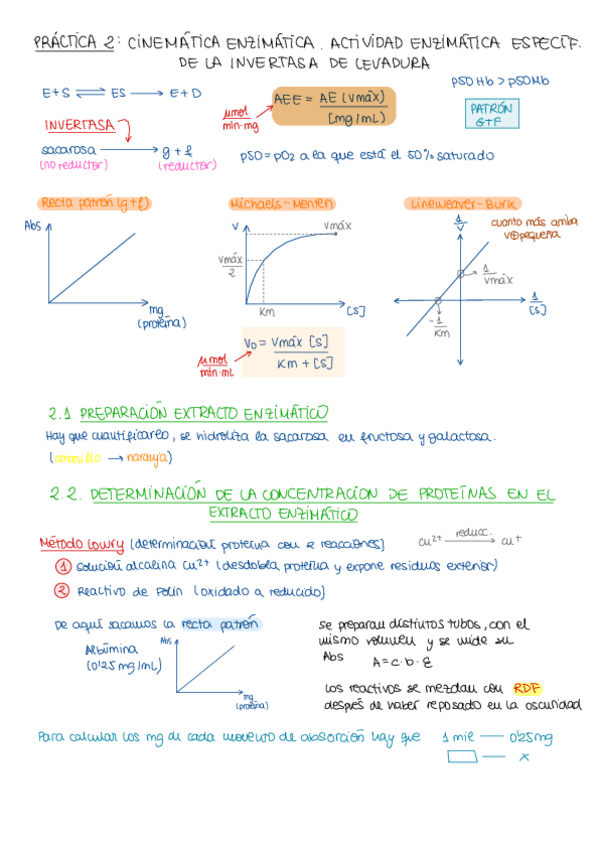 PRÁCTICA 2: CINEMÁTICA ENZIMÁTICA. ACTIVIDAD ENZIMÁTICA ESPECÍF.
DE LA INVERTASA DE LEVADURA
E+S ⇌ ES → E+D
AEE = AE (Vmáx) / [mg/mL]
μmol / min·mg
p50 Hb > p50Mb
PATRÓN
G+F
INVERTASA
sacarosa → g + f
(no reductor) (reductor)
p50 = pO2 a la que está el 50% saturado
Recta patrón (g+f)
Michaels-Menten
Lineweaver-Burk
Abs
mg
(proteína)
V
Vmáx
Vmáx / 2
Km
[S]
V0 = Vmáx [S] / Km + [S]
μmol / min·mL
1/V
cuanto más arriba
V⊕pequeña
1 / Vmáx
-1 / Km
1 / [S]
2.1 PREPARACIÓN EXTRACTO ENZIMÁTICO
Hay que cuantificarlo, se hidroliza la sacarosa en fructosa y galactosa.
(amarillo → naranja)
2.2. DETERMINACIÓN DE LA CONCENTRACIÓN DE PROTEÍNAS EN EL
EXTRACTO ENZIMÁTICO
Método Lowry (determinación proteína con 2 reacciones)
Cu2+ reducc. → Cu+
1 Solución alcalina Cu2+ (desdobla proteína y expone residuos exterior)
2 Reactivo de Folín (oxidado a reducido)
De aquí sacamos la recta patrón
Albúmina
(0'25 mg/mL)
Abs
mg
(proteína)
Se preparan distintos tubos, con el
mismo volumen y se mide su
Abs A = c·b·ε
Los reactivos se mezclan con RDF
después de haber reposado en la oscuridad
Para calcular los mg de cada momento de absorción hay que 1 mL — 0'25mg
— x